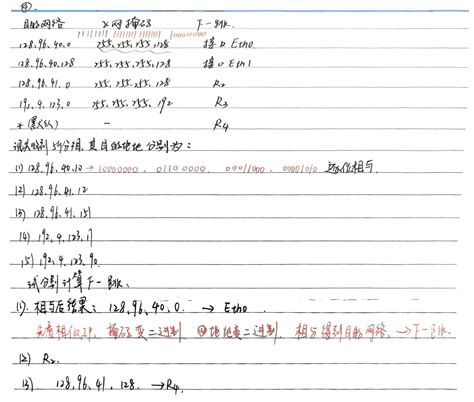 四.
目的网络 子网掩码 下一跳
11111111 11111111 11111111 10000000
128.96.40.0 255.255.255.128 接口 Eth0
128.96.40.128 255.255.255.128 接口 Eth1
128.96.41.0 255.255.255.128 R2
192.4.123.0 255.255.255.192 R3
*(默认) — R4
现共收到5个分组,其目的地址分别为:
(1) 128.96.40.10 → 10000000 . 01100000 . 00011000 . 00001010 逐位相与.
(2) 128.96.41.12
(3) 128.96.41.151
(4) 192.4.123.17
(5) 192.4.123.90.
试分别计算下一跳.
(1). 相与后结果: 128.96.40.0. → Eth0.
先看相似IP, 掩码变二进制, 地址变二进制, 相与得到目的网络, → 下一跳.
(2) R2.
(3) 128.96.41.128. → R4.